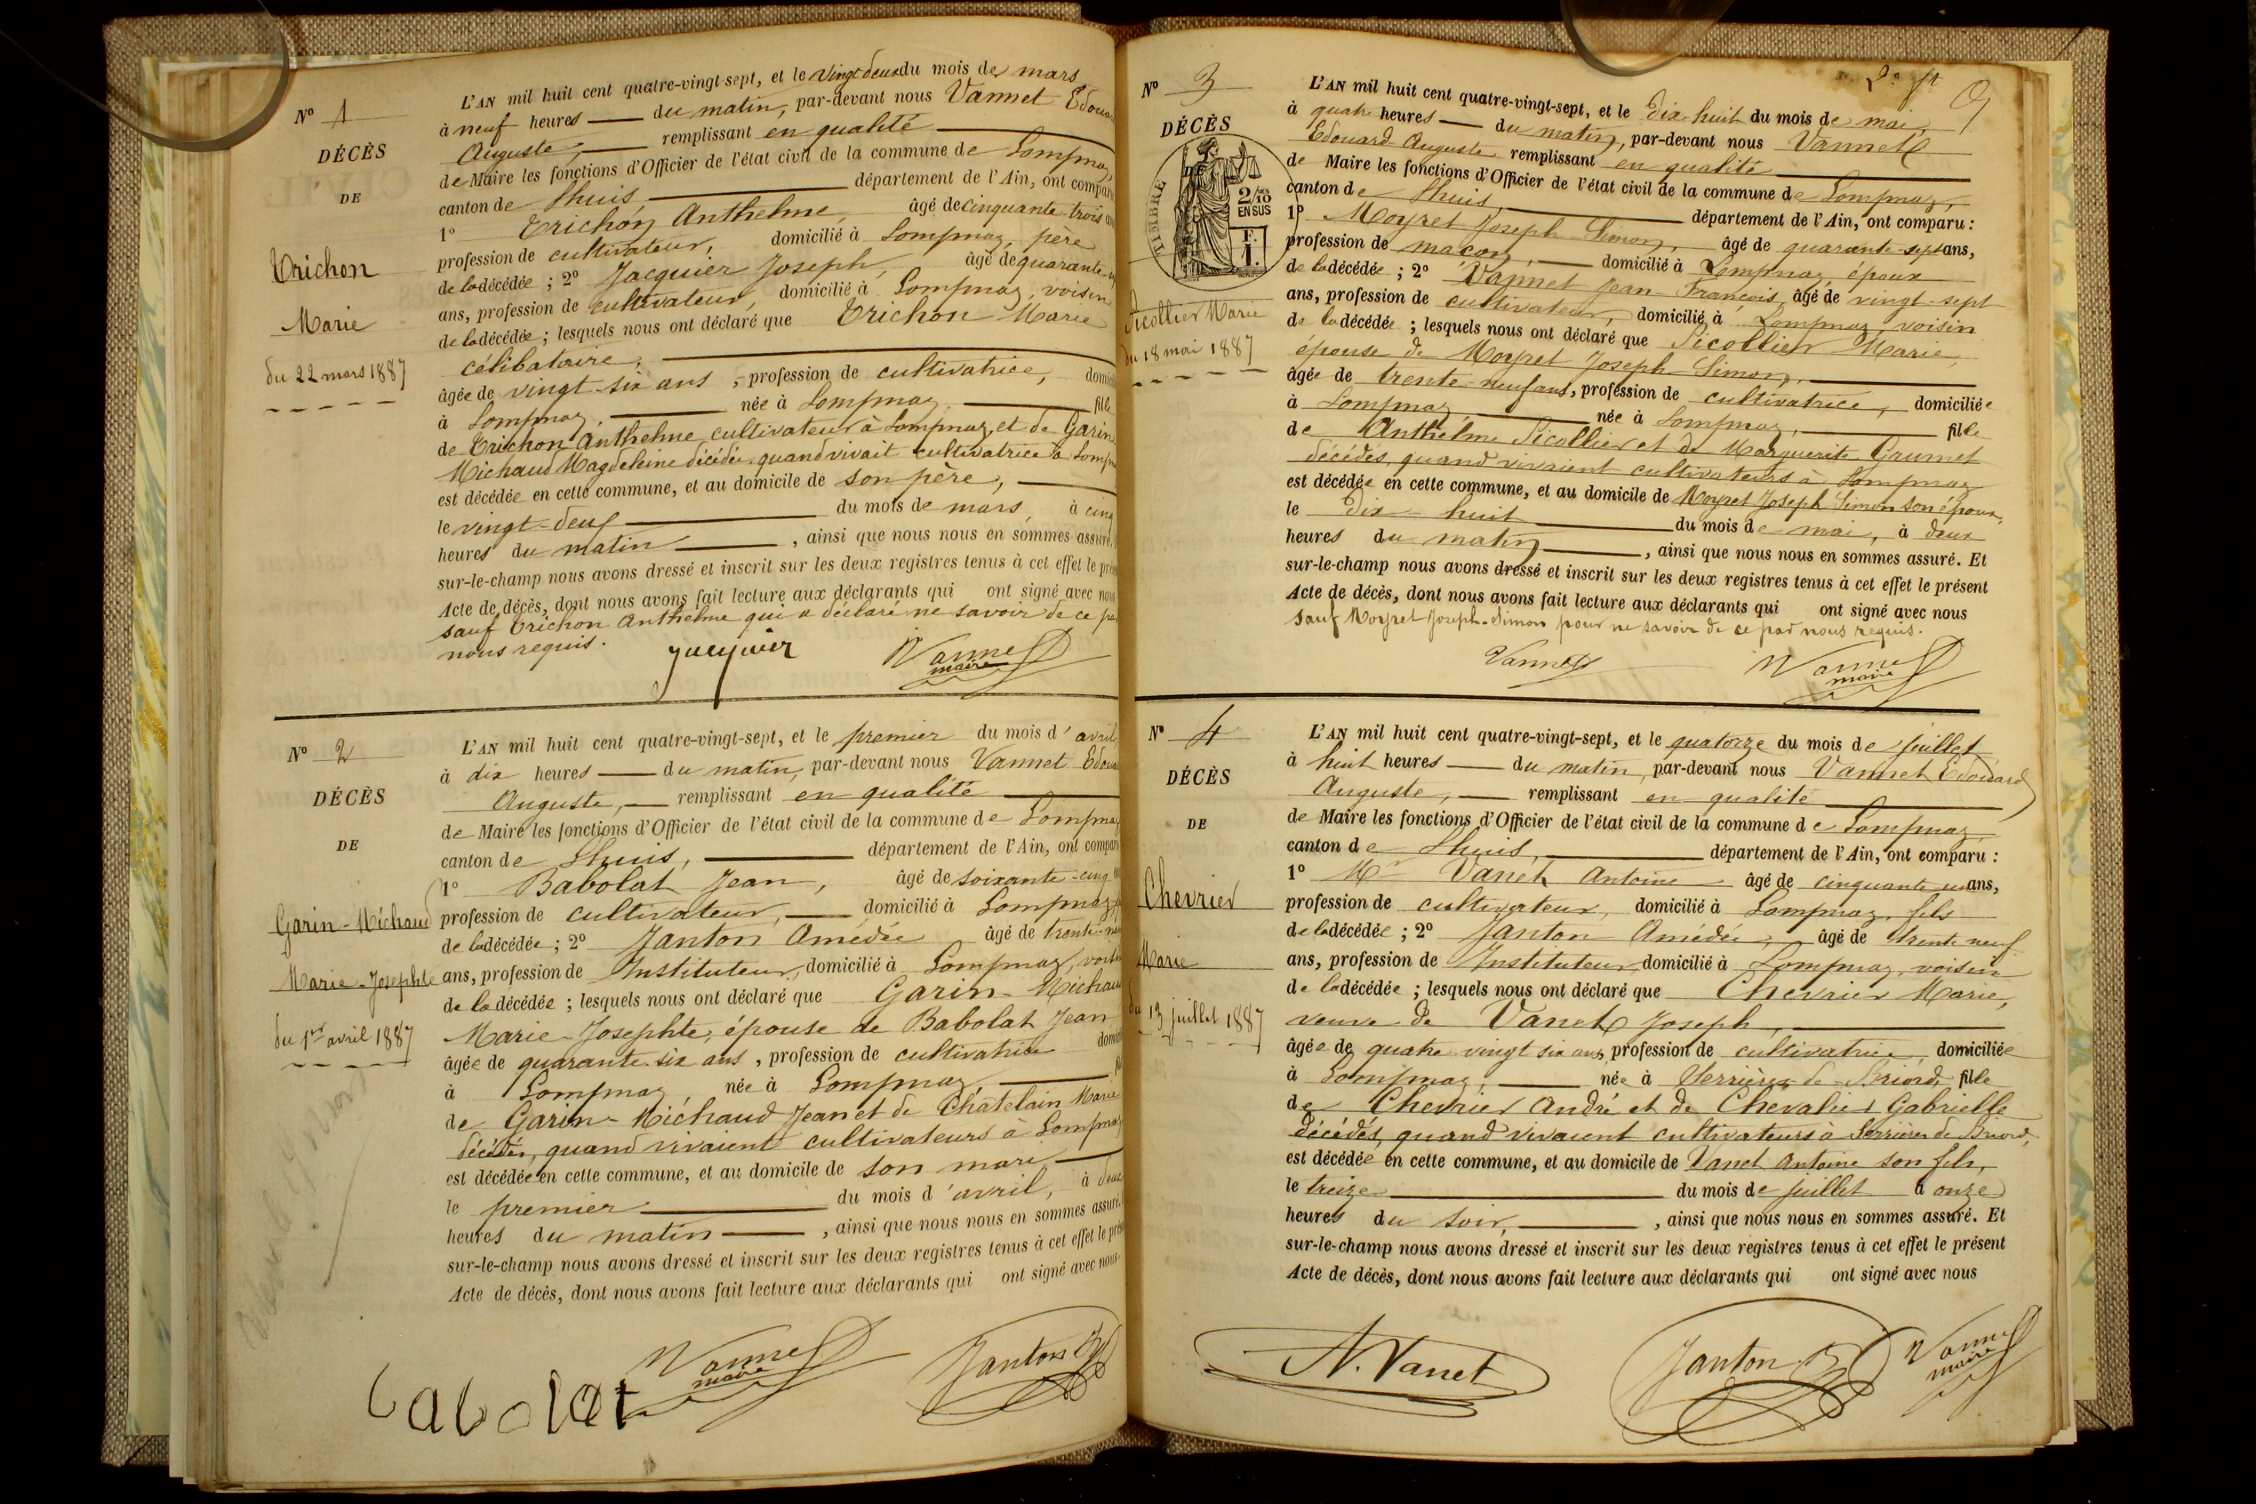 N° 1
DÉCÈS
DE
Trichon
Marie
du 22 mars 1887
L'AN mil huit cent quatre-vingt-sept, et le vingt deux du mois de mars
à neuf heures du matin, par-devant nous Vannet Edouard
Auguste, remplissant en qualité
de Maire les fonctions d'Officier de l'état civil de la commune de Lompnaz,
canton de Lhuis, département de l'Ain, ont comparu
1° Trichon Anthelme, âgé de cinquante-trois
profession de cultivateur, domicilié à Lompnaz, père
de la décédée ; 2° Jacquier Joseph, âgé de quarante
ans, profession de cultivateur, domicilié à Lompnaz, voisin
de la décédée ; lesquels nous ont déclaré que Trichon Marie
célibataire,
âgée de vingt-six ans, profession de cultivatrice,
à Lompnaz, née à Lompnaz, fille
de Trichon Anthelme cultivateur à Lompnaz, et de Garin
Michaud Magdeleine décédée quand vivait cultivatrice à
est décédée en cette commune, et au domicile de son père,
le vingt-deux du mois de mars, à cinq
heures du matin, ainsi que nous nous en sommes assuré.
sur-le-champ nous avons dressé et inscrit sur les deux registres tenus à cet effet le
Acte de décès, dont nous avons fait lecture aux déclarants qui ont signé avec nous
sauf Trichon Anthelme qui a déclaré ne savoir de ce par
nous requis.
Jacquier Vannet
maire
N° 2
DÉCÈS
DE
Garin-Michaud
Marie-Josephte
du 1er avril 1887
L'AN mil huit cent quatre-vingt-sept, et le premier du mois d'avril
à dix heures du matin, par-devant nous Vannet
Auguste, remplissant en qualité
de Maire les fonctions d'Officier de l'état civil de la commune de Lompnaz
canton de Lhuis, département de l'Ain, ont comparu
1° Babolat Jean, âgé de soixante-cinq
profession de cultivateur, domicilié à Lompnaz,
de la décédée ; 2° Janton Amédée âgé de trente-neuf
ans, profession de Instituteur, domicilié à Lompnaz, voisin
de la décédée ; lesquels nous ont déclaré que Garin-Michaud
Marie-Josephte, épouse de Babolat Jean
âgée de quarante six ans, profession de cultivatrice
à Lompnaz, née à Lompnaz,
de Garin-Michaud Jean et de Chatelain Marie
décédés, quand vivaient cultivateurs à Lompnaz
est décédée en cette commune, et au domicile de son mari
le premier du mois d'avril, à deux
heures du matin, ainsi que nous nous en sommes assuré.
sur-le-champ nous avons dressé et inscrit sur les deux registres tenus à cet effet le
Acte de décès, dont nous avons fait lecture aux déclarants qui ont signé avec nous
babolat Vannet
maire
Janton
N° 3
DÉCÈS
TIMBRE
2/10
EN SUS
F.
1.
Sicollier Marie
du 18 mai 1887
L'AN mil huit cent quatre-vingt-sept, et le dix-huit du mois de mai,
à quatre heures du matin, par-devant nous Vannet
Edouard Auguste remplissant en qualité
de Maire les fonctions d'Officier de l'état civil de la commune de Lompnaz,
canton de Lhuis, département de l'Ain, ont comparu :
1° Moyret Joseph-Simon, âgé de quarante-sept ans,
profession de maçon, domicilié à Lompnaz, époux
de la décédée ; 2° Vannet Jean-François, âgé de vingt-sept
ans, profession de cultivateur, domicilié à Lompnaz, voisin
de la décédée ; lesquels nous ont déclaré que Sicollier Marie,
épouse de Moyret Joseph Simon,
âgée de trente-neuf ans, profession de cultivatrice, domiciliée
à Lompnaz, née à Lompnaz, fille
de Anthelme Sicollier et de Marguerite Grumet
décédés, quand vivaient cultivateurs à Lompnaz
est décédée en cette commune, et au domicile de Moyret Joseph Simon son époux,
le dix-huit du mois de mai, à deux
heures du matin, ainsi que nous nous en sommes assuré. Et
sur-le-champ nous avons dressé et inscrit sur les deux registres tenus à cet effet le présent
Acte de décès, dont nous avons fait lecture aux déclarants qui ont signé avec nous
sauf Moyret Joseph-Simon pour ne savoir de ce par nous requis.
Vannet Vannet
maire
N° 4
DÉCÈS
DE
Chevrier
Marie
du 13 juillet 1887
L'AN mil huit cent quatre-vingt-sept, et le quatorze du mois de juillet
à huit heures du matin, par-devant nous Vannet Edouard
Auguste, remplissant en qualité
de Maire les fonctions d'Officier de l'état civil de la commune de Lompnaz,
canton de Lhuis, département de l'Ain, ont comparu :
1° Mr Vanet Antoine âgé de cinquante un ans,
profession de cultivateur, domicilié à Lompnaz, fils
de la décédée ; 2° Janton Amédée, âgé de trente neuf
ans, profession de Instituteur, domicilié à Lompnaz, voisin
de la décédée ; lesquels nous ont déclaré que Chevrier Marie,
veuve de Vanet Joseph,
âgée de quatre vingt six ans, profession de cultivatrice, domiciliée
à Lompnaz, née à Serrières de Briord, fille
de Chevrier André et de Chevalier Gabrielle
décédés, quand vivaient cultivateurs à Serrières de Briord,
est décédée en cette commune, et au domicile de Vanet Antoine son fils,
le treize du mois de juillet à onze
heures du soir, ainsi que nous nous en sommes assuré. Et
sur-le-champ nous avons dressé et inscrit sur les deux registres tenus à cet effet le présent
Acte de décès, dont nous avons fait lecture aux déclarants qui ont signé avec nous
A. Vanet Janton Vannet
maire